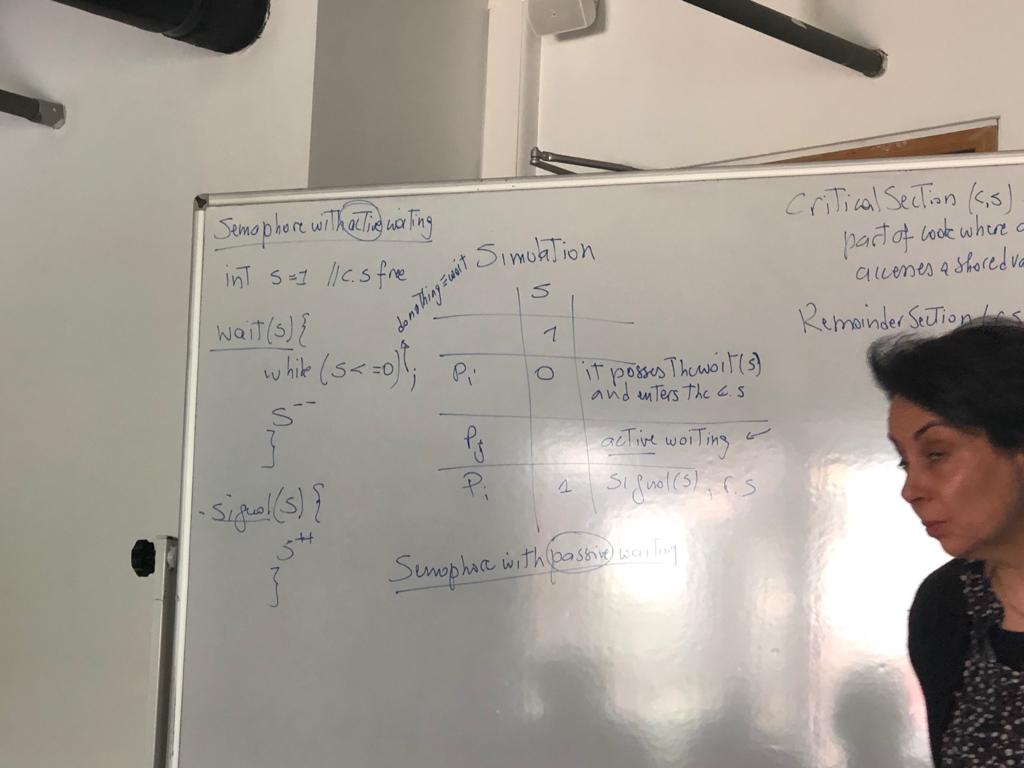 Semaphore with active waiting
int s=1 //c.s free
wait(s){
while (s<=0){;
do nothing = wait
s--
}
- signal(s) {
s++
}
Simulation
S
1
Pi 0 it passes the wait(s)
and enters the c.s
Pj active waiting
Pi 1 signal(s), r.s
Semaphore with passive waiting
Critical Section (c,s)
part of code where
accesses a shared
Remainder Section